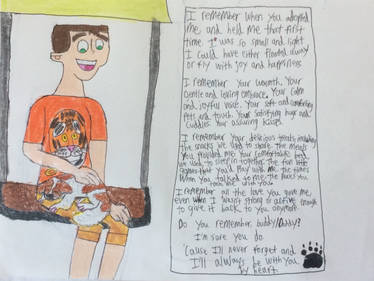 I remember when you adopted
me and held me that first
time. I was so small and light
I could have either floated away
or fly with joy and happiness
I remember Your warmth, Your
Gentle and loving embrace, Your calm
and joyful voice, Your soft and comforting
pets and touch, Your satisfying hugs and
cuddles, Your assuring kisses
I remember Your delicious treats including
the snacks we used to share, The meals
You provided me, Your comfortable bed
we used to sleep in together, The fun little
games that you'd play with me, the times
When you talked to me, the places you
took me with you.
I remember all the love you gave me,
even when I wasn't strong or alive enough
to give it back to you anymore
Do you remember buddy/Daddy?
I'm sure you do
'Cause I'll never forget and
I'll always be with you
by heart.